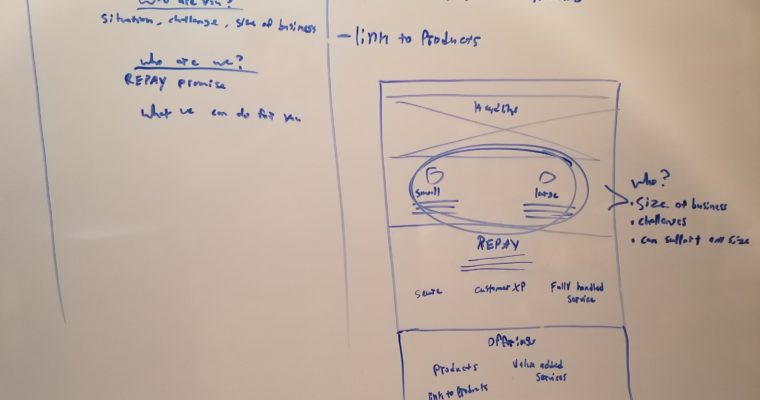 who are you?
situation, challenge, size of business
who are we?
REPAY promise
What we can do for you
- link to Products
Headline
small
large
who?
• Size of business
• challenges
• can support all size
REPAY
Customer XP
Fully handled
Service
Offerings
Products
Value added
Services
link to Products